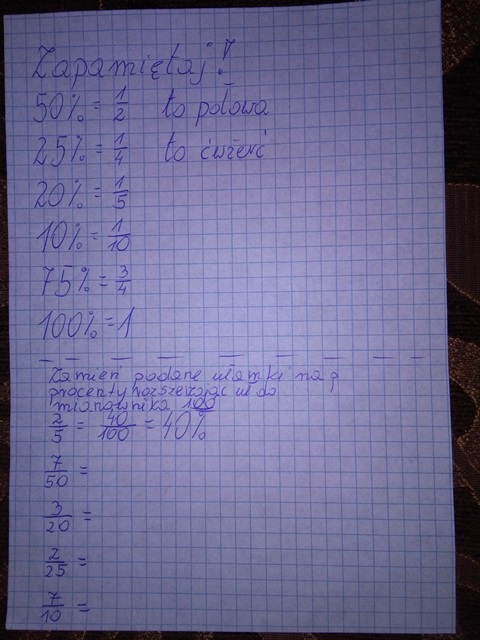 Zapamiętaj!
50% = 1/2 to połowa
25% = 1/4 to ćwierć
20% = 1/5
10% = 1/10
75% = 3/4
100% = 1
Zamień podane ułamki na p
procenty rozszerzając w do
mianownika 100
2/5 = 40/100 = 40%
7/50 =
3/20 =
2/25 =
7/10 =